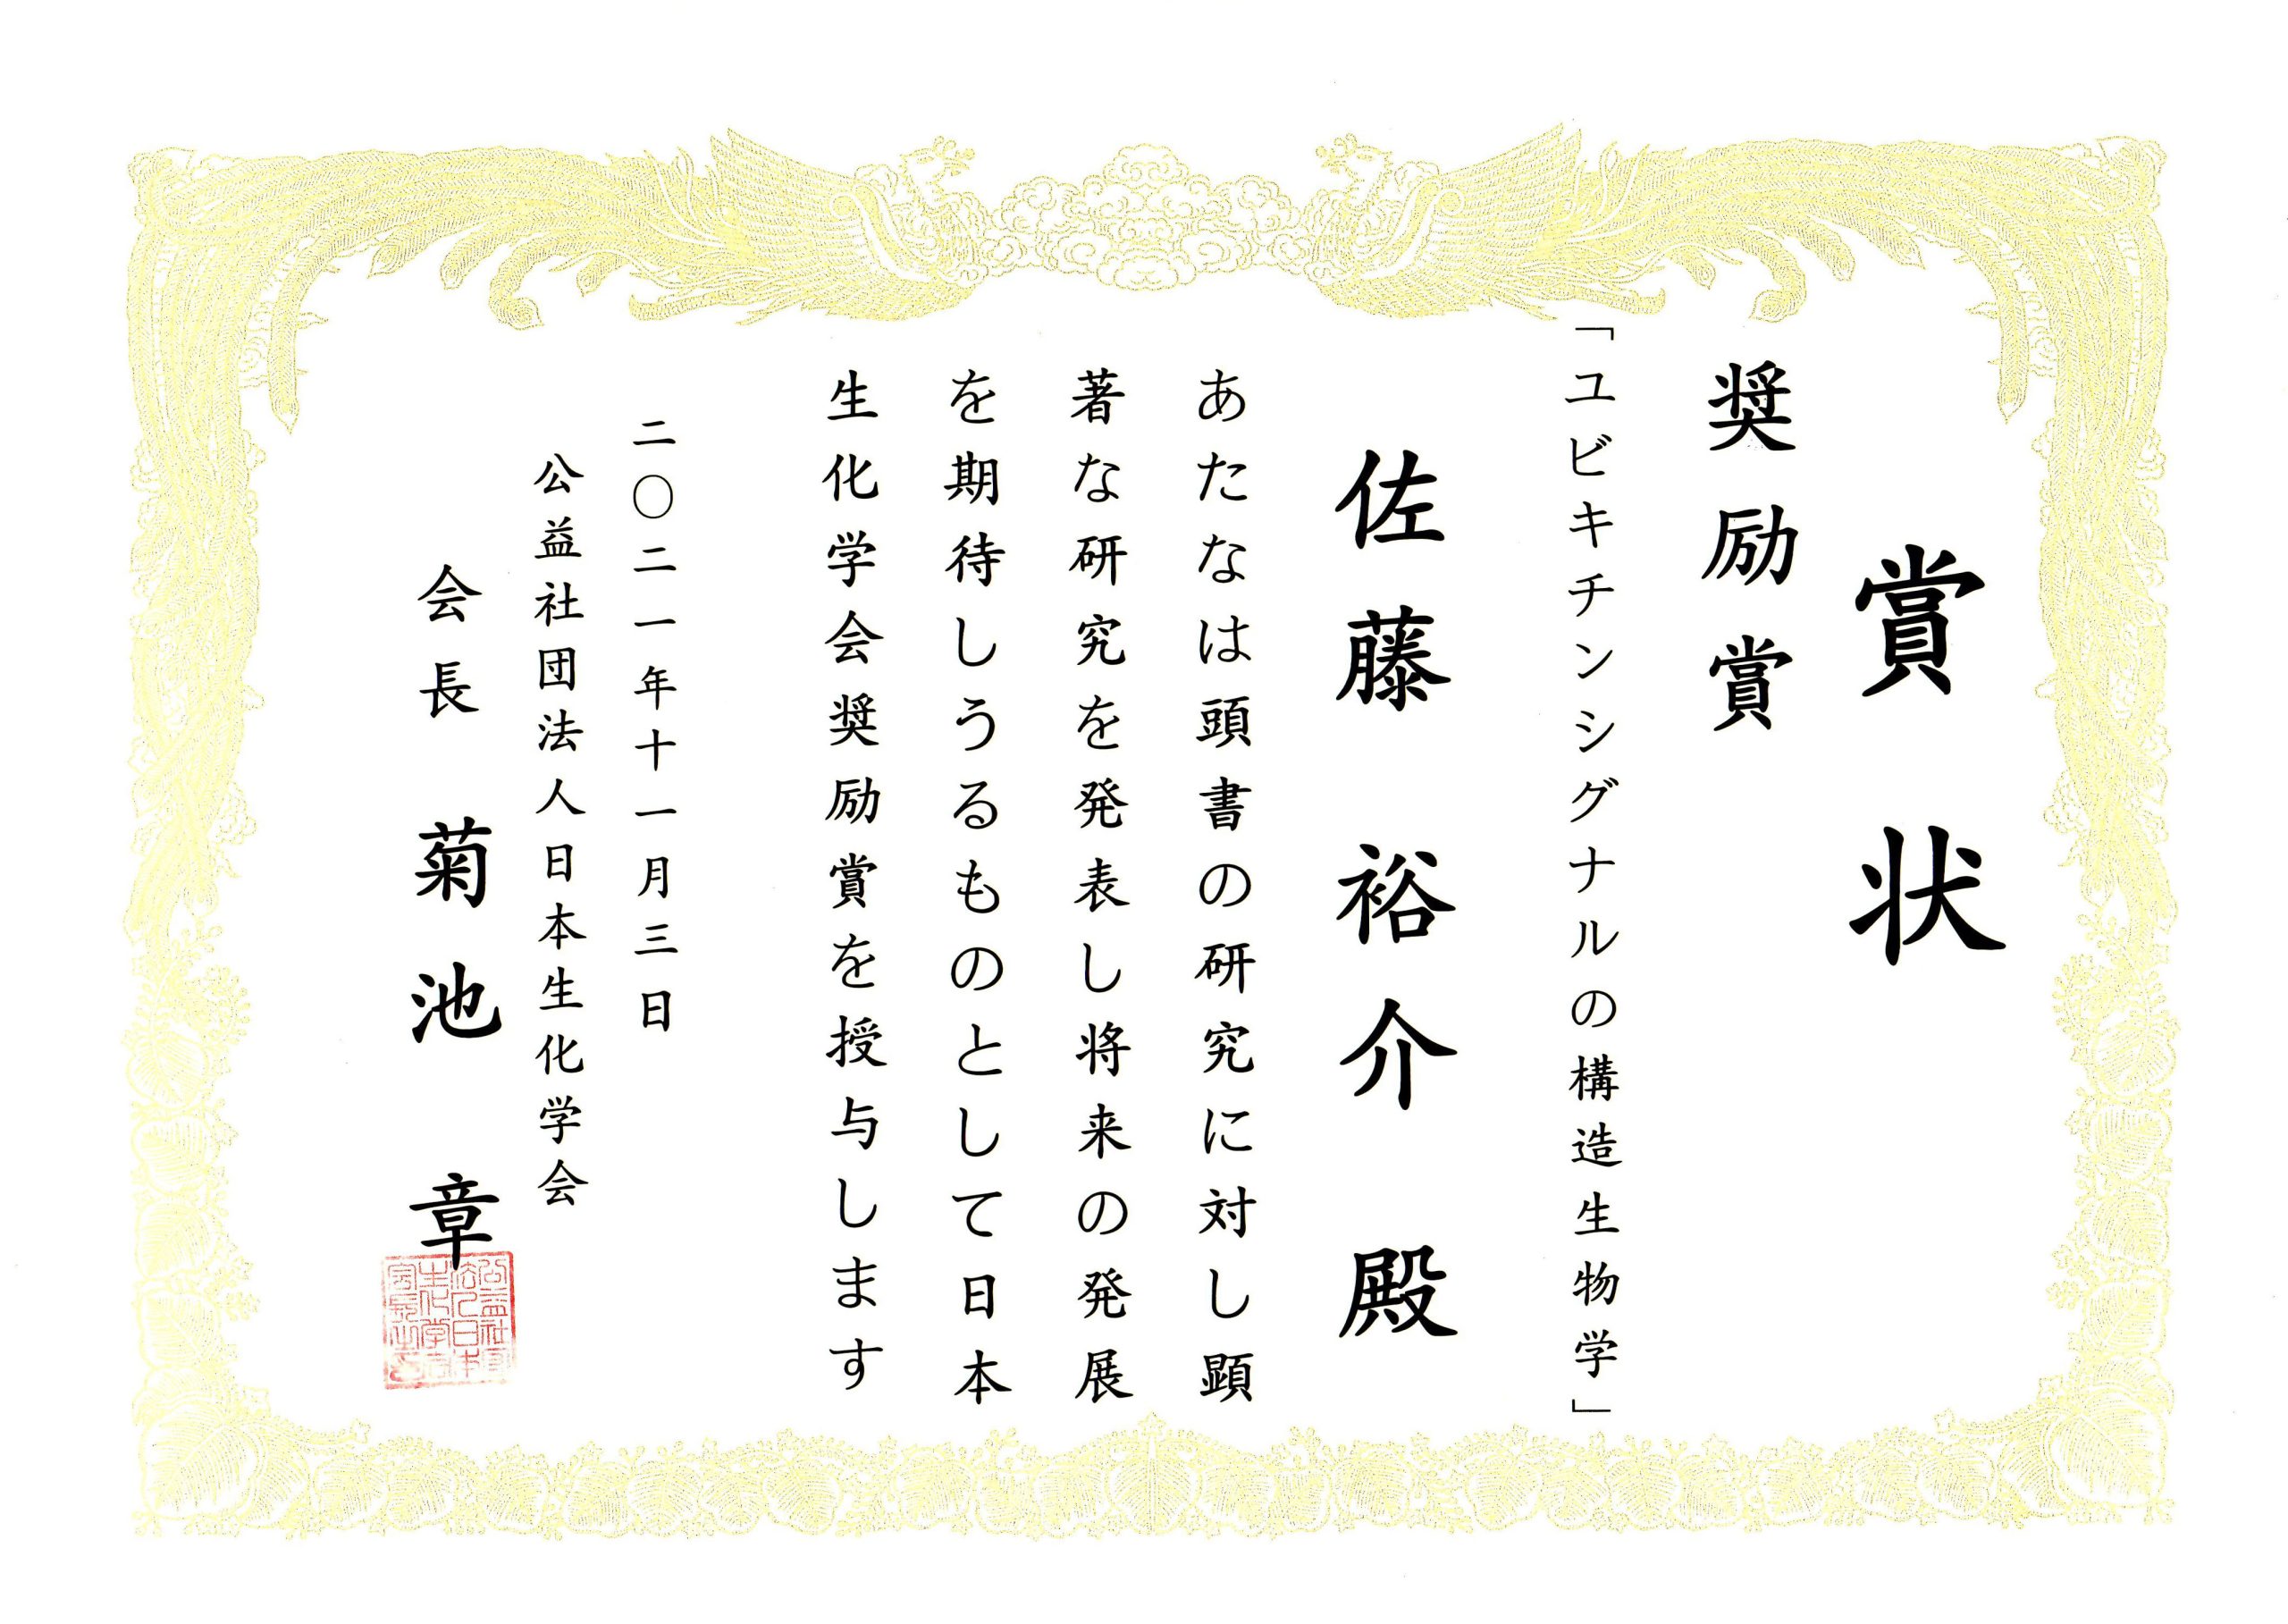 賞状
奨励賞
「ユビキチンシグナルの構造生物学」
佐藤 裕介 殿
あたなは頭書の研究に対し顕
著な研究を発表し将来の発展
を期待しうるものとして日本
生化学会奨励賞を授与します
二〇二一年十一月三日
公益社団法人日本生化学会
会長 菊池 章